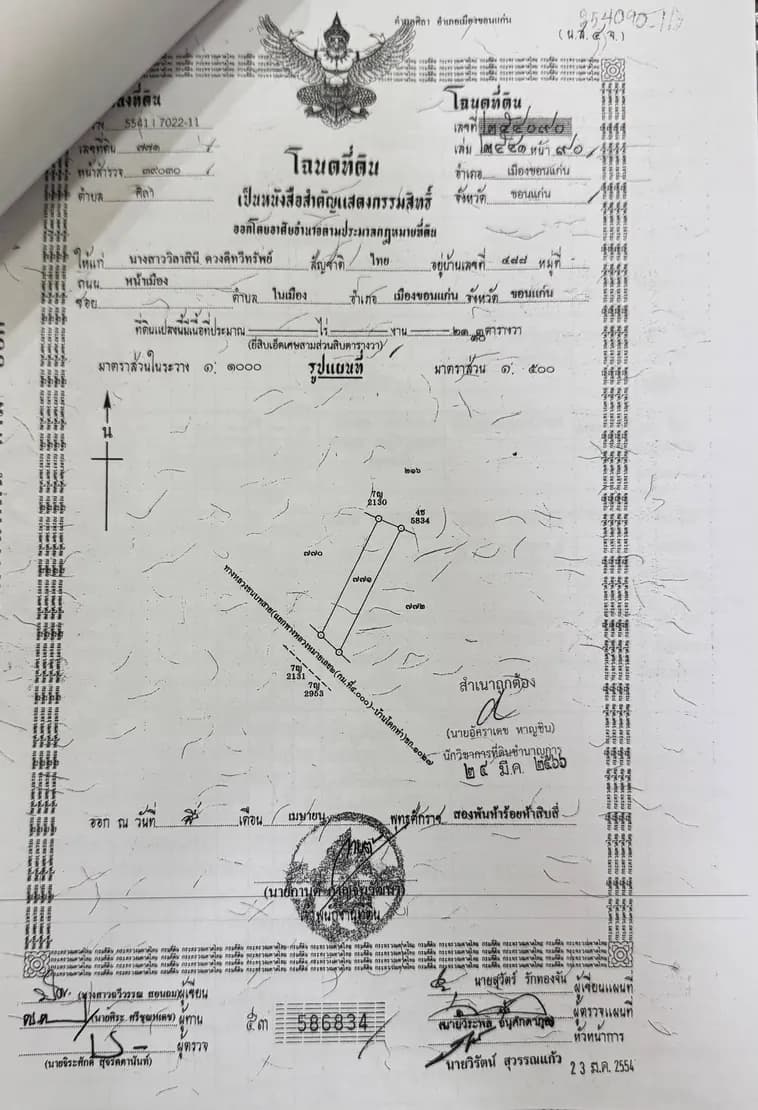 ตำบลศิลา อำเภอเมืองขอนแก่น
254090
(น.ส. ๔ จ.)
ที่ดิน
5541 I 7022-11
เลขที่ดิน ๗๗๑
หน้าสำรวจ ๓๙๐๓๐
ตำบล ศิลา
โฉนดที่ดิน
เลขที่ ๒๕๔๐๙๐
เล่ม ๒๕๔๑ หน้า ๙๐
อำเภอ เมืองขอนแก่น
จังหวัด ขอนแก่น
โฉนดที่ดิน
เป็นหนังสือสำคัญแสดงกรรมสิทธิ์
ออกโดยอาศัยอำนาจตามประมวลกฎหมายที่ดิน
ให้แก่ นางสาววิลาสินี ดวงดิทวีทรัพย์ สัญชาติ ไทย อยู่บ้านเลขที่ ๔๘๘ หมู่ที่ -
ถนน หน้าเมือง
ซอย ตำบล ในเมือง อำเภอ เมืองขอนแก่น จังหวัด ขอนแก่น
ที่ดินแปลงนี้มีเนื้อที่ประมาณ ไร่ งาน ๒๑ ๓/๑๐ ตารางวา
(ยี่สิบเอ็ดเศษสามส่วนสิบตารางวา)
มาตราส่วนในระวาง ๑: ๑๐๐๐ รูปแผนที่ มาตราส่วน ๑: ๕๐๐
น
๒๑๖
7ญ
2130
4ช
5834
๗๗๐
๗๗๑
๗๗๒
ทางหลวงชนบทสาย(แยกทางหลวงหมายเลข๒(กม.ที่๔.๐๐๐)-บ้านโคกท่า)ขก.๑๐๒๗
7ญ
2131
7ญ
2953
สำเนาถูกต้อง
(นายอัคราเดช หาญชิน)
นักวิชาการที่ดินชำนาญการ
๒๔ มี.ค. ๒๕๖๖
ออก ณ วันที่ สี่ เดือน เมษายน พุทธศักราช สองพันห้าร้อยห้าสิบสี่
ผู้เขียน
ผู้ทาน
ผู้ตรวจ
(นายจิระศักดิ์ สุจริตานันท์)
586834
นายสุวัตร์ รักทองจัน ผู้เขียนแผนที่
ผู้ตรวจแผนที่
หัวหน้าการ
นายวิรัตน์ สุวรรณแก้ว 23 มี.ค. 2554